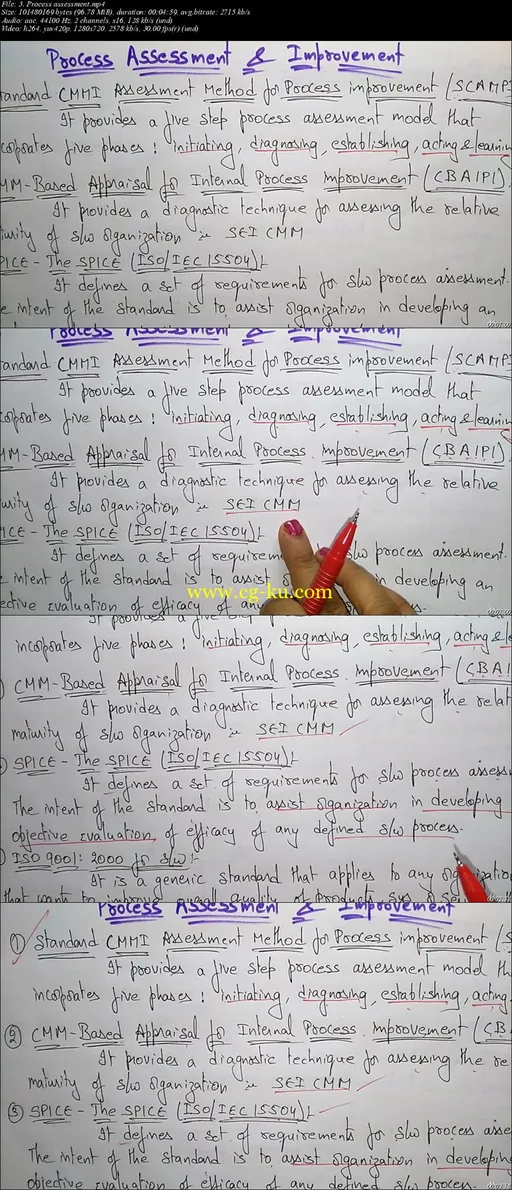 File: 3. Process assessment.mp4
Size: 101480169 bytes (96.78 MiB), duration: 00:04:59, avg.bitrate: 2715 kb/s
Audio: aac, 44100 Hz, 2 channels, s16, 128 kb/s (und)
Video: h264, yuv420p, 1280x720, 2578 kb/s, 30.00 fps(r) (und)
Process Assessment & Improvement
tandard CMMI Assessment Method for Process improvement (SCAMPI
It provides a five step process assessment model that
corporates five phases : initiating, diagnosing, establishing, acting & learnin
MM-Based Appraisal for Internal Process Improvement (CBAIPI).
It provides a diagnostic technique for assessing the relative
turity of s/w organization in SEI CMM
PICE - The SPICE (ISO/IEC 15504) :-
It defines a set of requirements for s/w process assessment.
e intent of the standard is to assist organization in developing an
Process Assessment & Improvement
tandard CMMI Assessment Method for Process improvement (SCAMP
It provides a five step process assessment model that
corporates five phases : initiating, diagnosing, establishing, acting & learnin
MM-Based Appraisal for Internal Process Improvement (CBAIPI).
It provides a diagnostic technique for assessing the relative
urity of s/w organization in SEI CMM
ICE - The SPICE (ISO/IEC 15504) :-
It defines a set of requirem s/w process assessment.
e intent of the standard is to assist in developing an
ective evaluation of efficacy of any
www.cg-ku.com
It provides a five step
incorporates five phases : initiating, diagnosing, establishing, acting & le
CMM-Based Appraisal for Internal Process Improvement (CBAI
It provides a diagnostic technique for assessing the relat
maturity of s/w organization in SEI CMM
SPICE - The SPICE (ISO/IEC 15504) :-
It defines a set of requirements for s/w process assess
The intent of the standard is to assist organization in developing
objective evaluation of efficacy of any defined s/w process.
ISO 9001: 2000 for s/w :-
It is a generic standard that applies to any organization
that want to improve overall quality of products, sys
Process Assessment & Improvement
① Standard CMMI Assessment Method for Process improvement (S
It provides a five step process assessment model th
incorporates five phases : initiating, diagnosing, establishing, acting
② CMM-Based Appraisal for Internal Process Improvement (CB
It provides a diagnostic technique for assessing the re
maturity of s/w organization in SEI CMM
③ SPICE - The SPICE (ISO/IEC 15504) :-
It defines a set of requirements for s/w process asse
The intent of the standard is to assist organization in developing
objective evaluation of efficacy of any defined s/w process